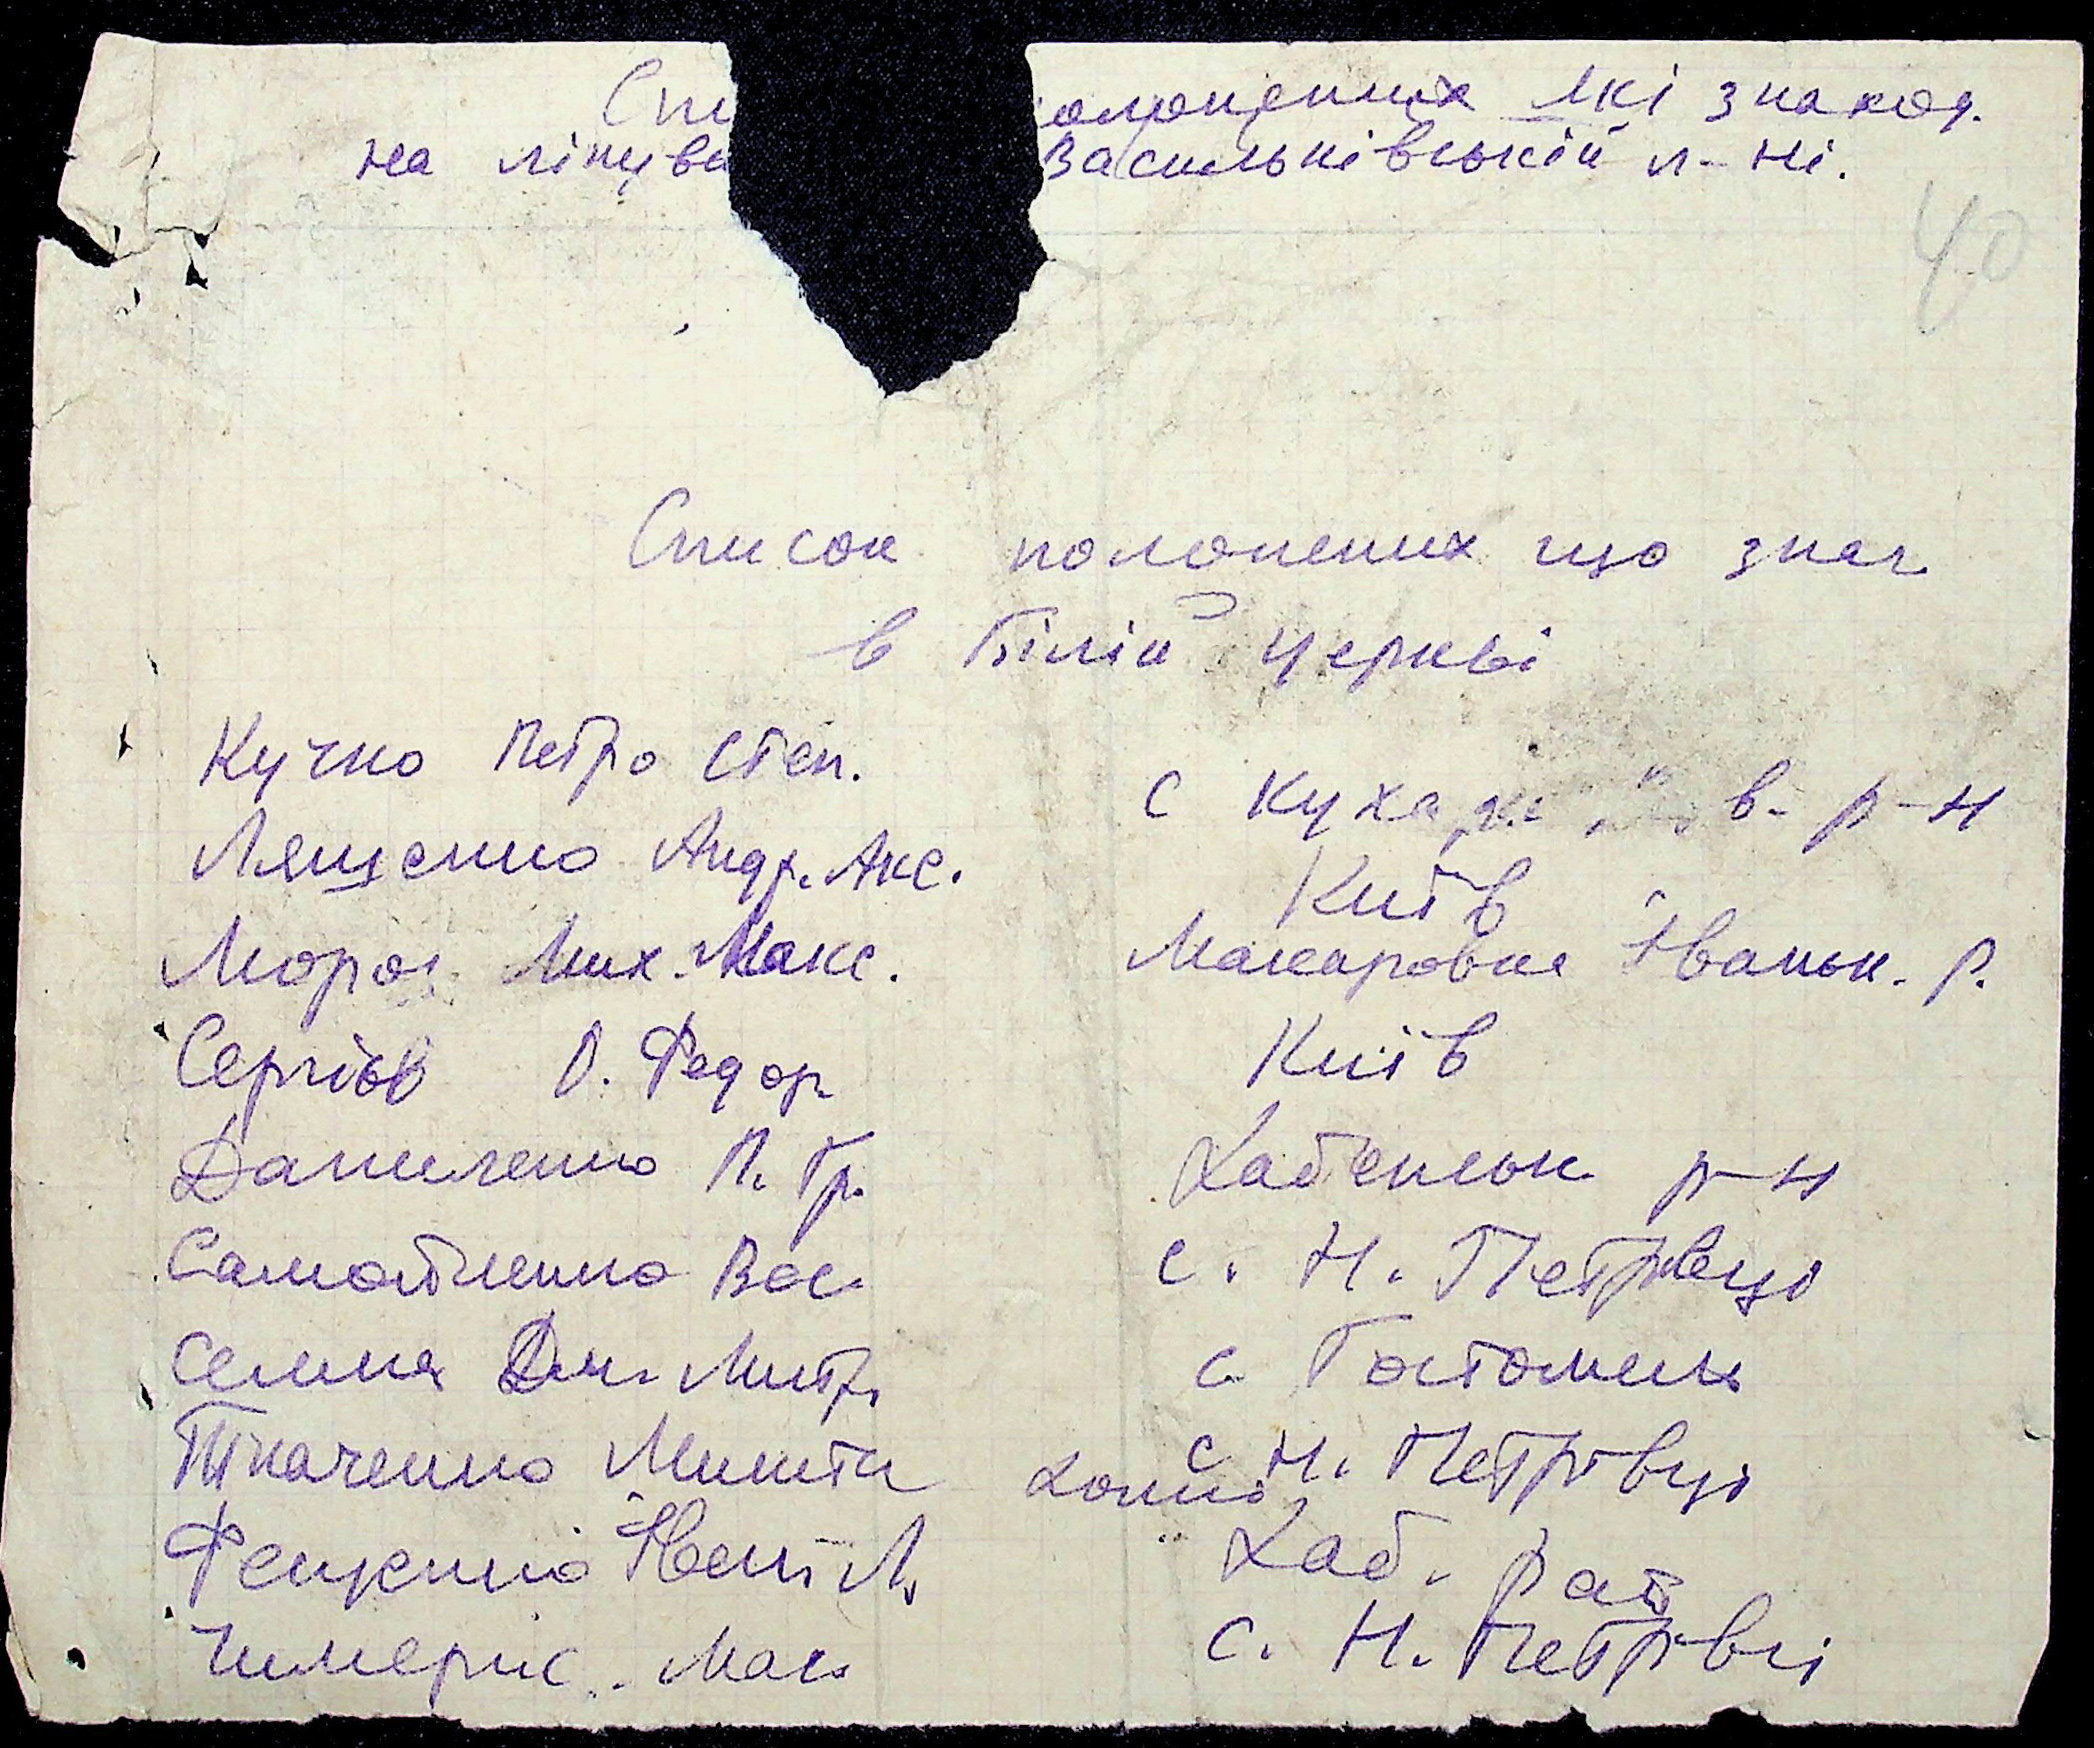 Спи олонених які знаход.
на лікува Васильківській л-ні.
40
Список полонених що знах
в Білій Церкві
Кучко Петро Степ. с Куха в. р-н
Лященко Андр. Акс. Київ
Мороз Мих. Макс. Макаровка Іваньк. р.
Сергієв О. Федор. Київ
Даниленко П. Гр. Хабенськ р-н
Самойленко Вас. с. Н. Петрівці
Семка Дм. Митр. с. Гостомель
Ткаченко Микита с Н. Петрівці
Фещенко Л. Хаб. рай
Чимеріс Мак. с. Н. Петрівці